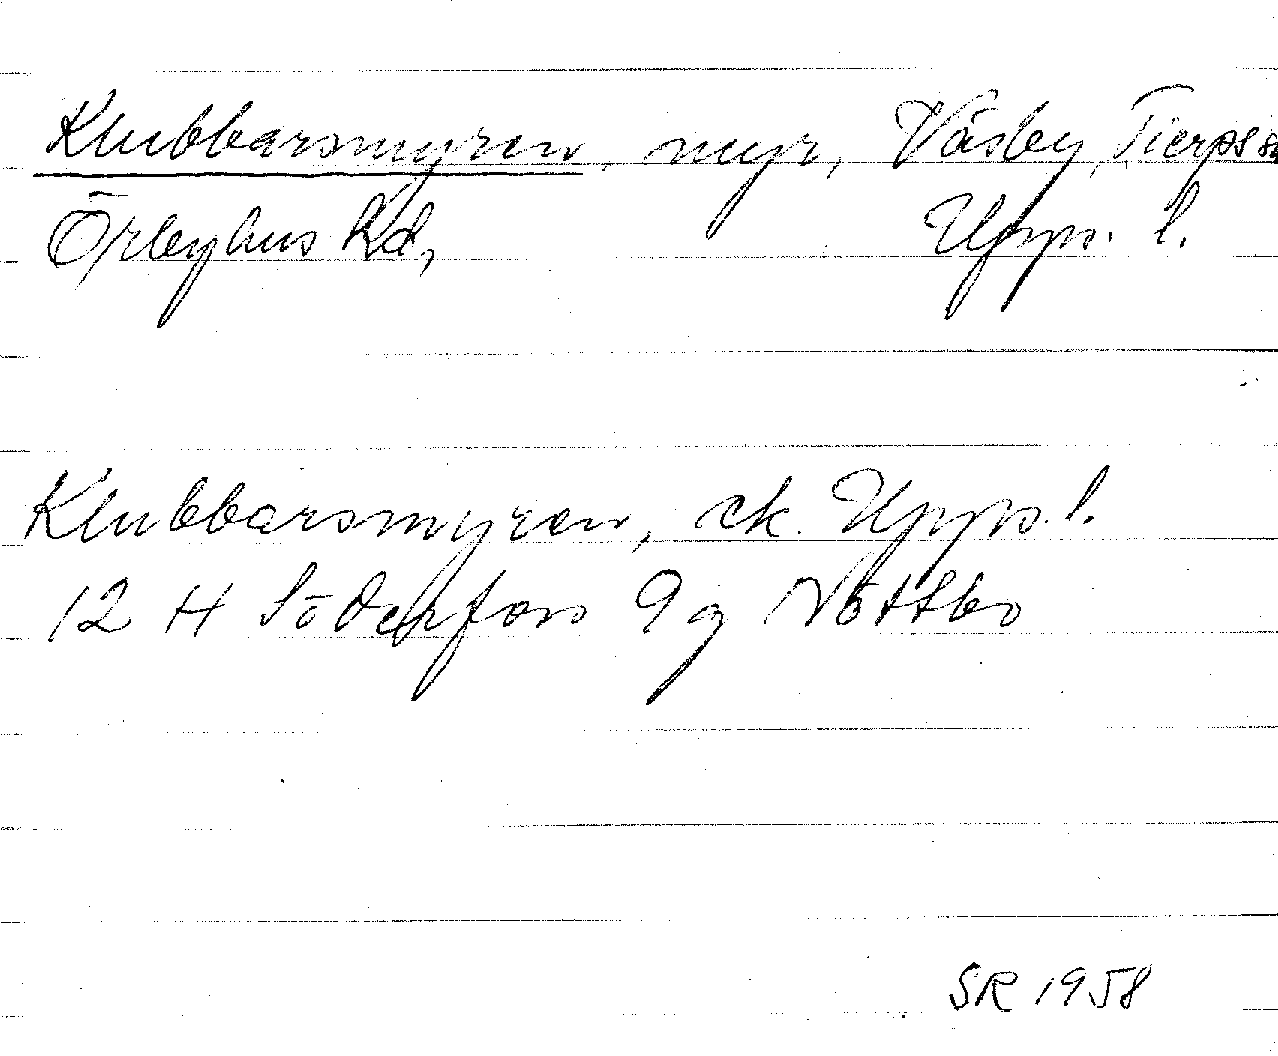 Klubbarsmyren, myr, Väsby, Tierps sn
Örbyhus hd, Upps. l.
Klubbarsmyren, ek. Upps. l.
12 H Söderfors 9 g Nöttbo
SR 1958